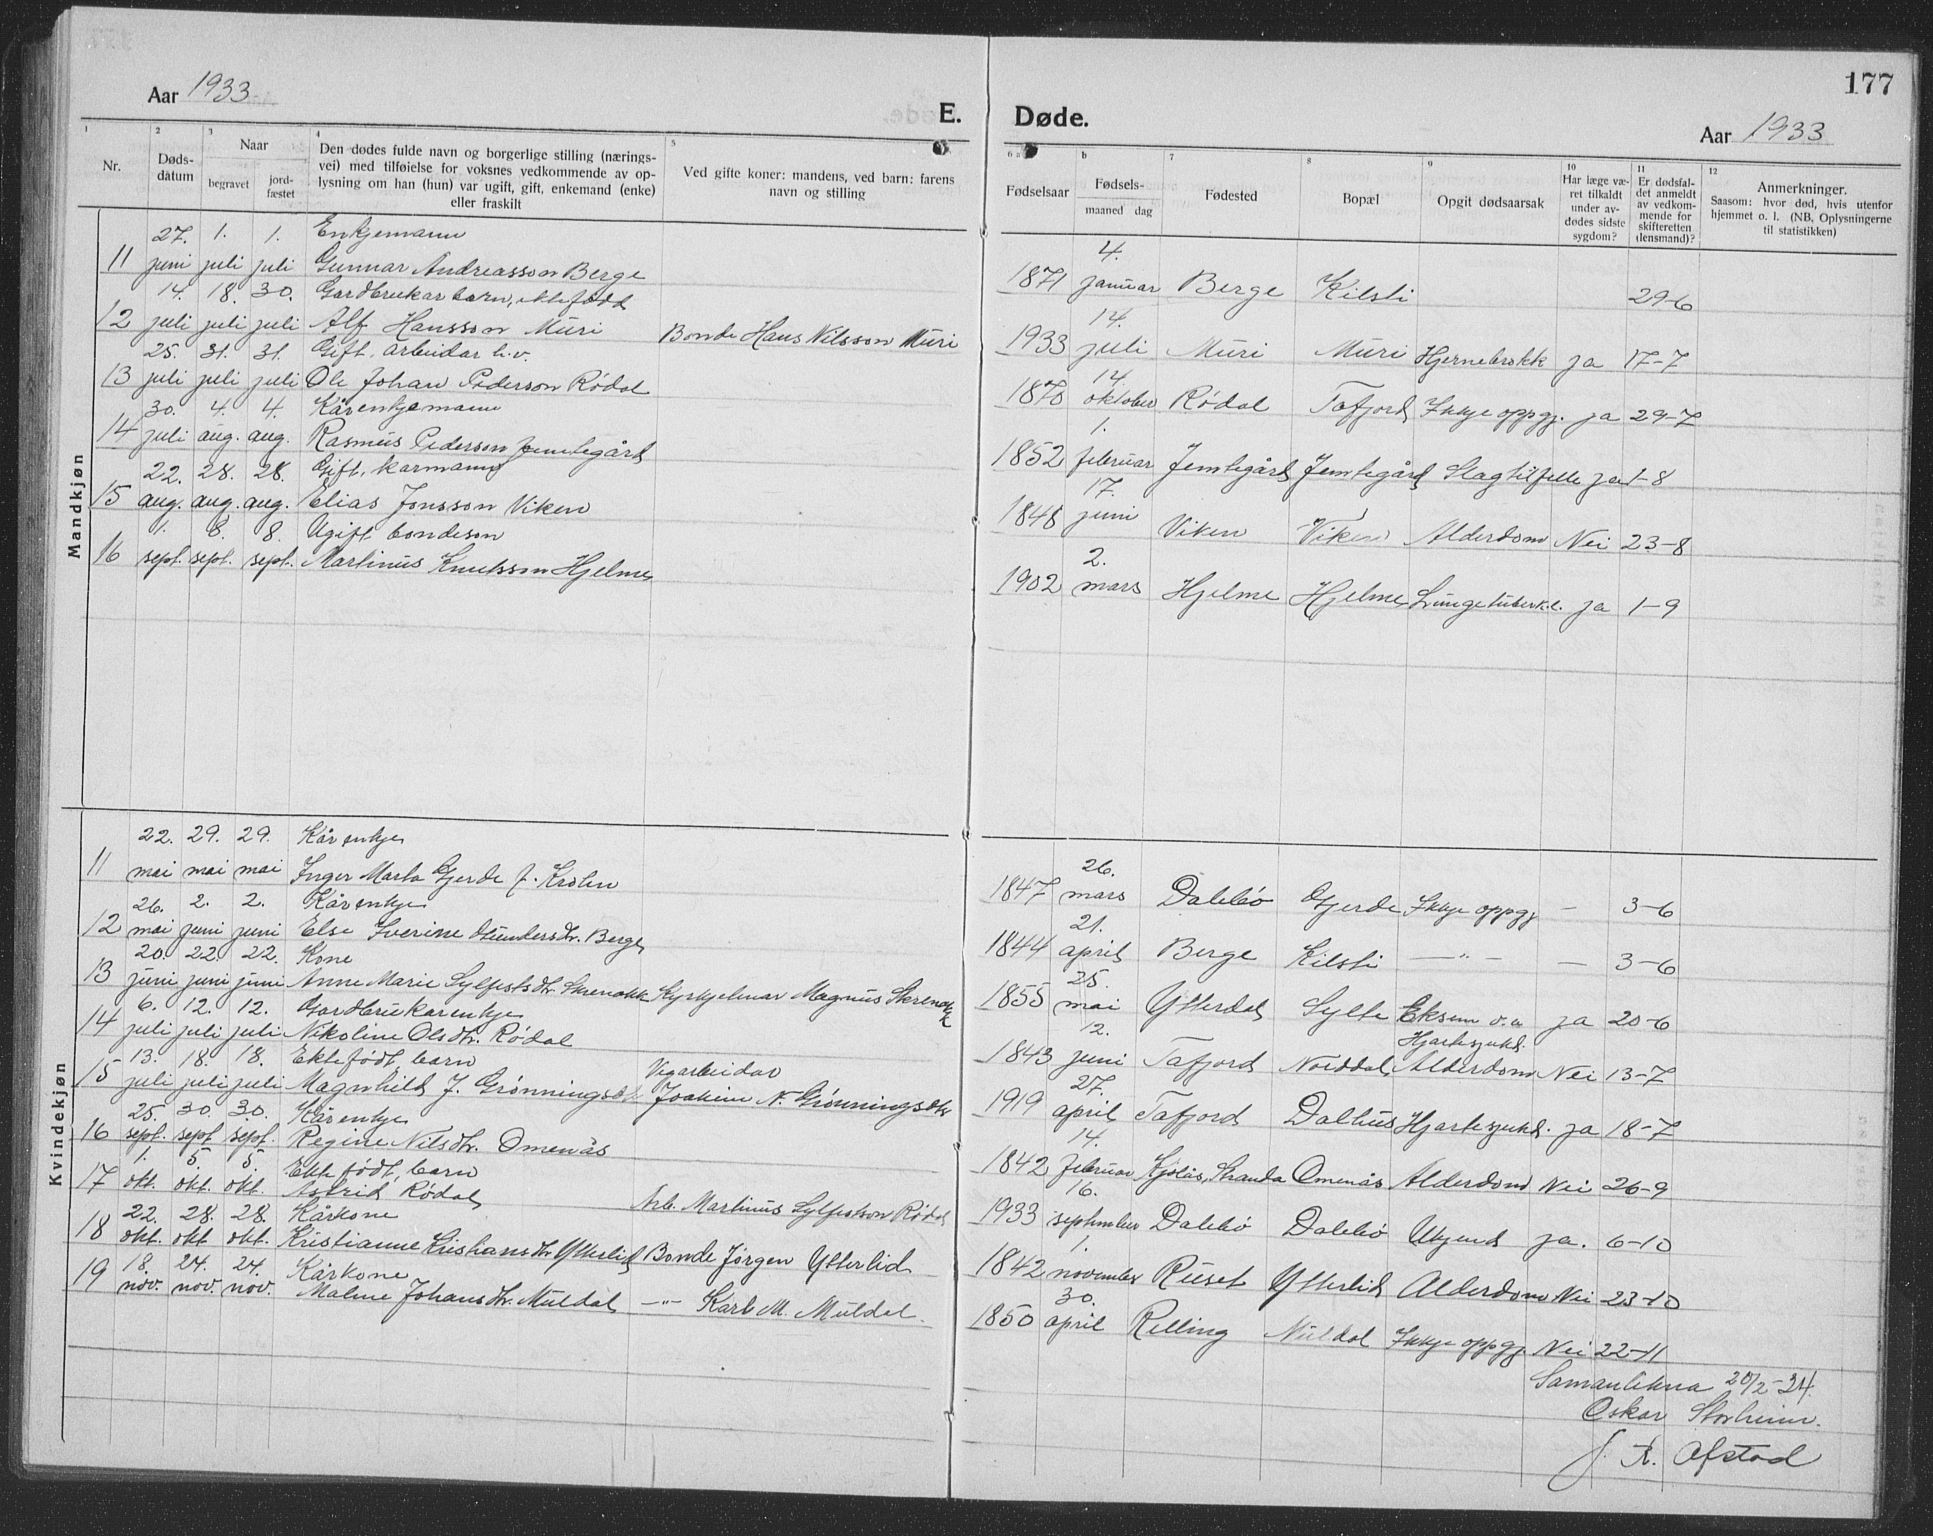 Aar 1933
E.
1 2 3 4 5
Nr.
Døds-
datum
Naar
begravet
jord-
fæstet
Den dødes fulde navn og borgerlige stilling (nærings-
vei) med tilføielse for voksnes vedkommende av op-
lysning om han (hun) var ugift, gift, enkemand (enke)
eller fraskilt
Ved gifte koner: mandens, ved barn: farens
navn og stilling
Mandkjøn
27. 1. 1. Enkjemann
11 juni juli juli Gunnar Andreasson Berge
14. 18. 30. Gardbrukar barn, ektefødd
12 juli juli juli Alf Hansson Muri Bonde Hans Nilsson Muri
25. 31. 31. Gift, arbeidar
13 juli juli juli Ole Johan Pederson Rødal
30. 4. 4. Kårenkjemann
14 juli aug. aug. Rasmus Pederson Jemtegård
22. 28. 28. Gift, karmann
15 aug. aug. aug. Elias Jonsson Viken
1. 8. 8. Ugift bondeson
16 sept. sept. sept. Martinus Knutsson Hjelme
Kvindekjøn
22. 29. 29. Kårenkje
11 mai mai mai Inger Marta Gjerde f.
26. 2. 2. Kårenkje
12 mai juni juni Else Iverine Berge
20. 22. 22. Kone
13 juni juni juni Anne Marie Sylfestsdtr. Skrenakk Kyrkjetenar Magnus Skrenakk
6. 12. 12. Gardbrukarenkje
14 juli juli juli Nikoline Olsdtr. Rødal
13. 18. 18. Ektefødt barn Vegarbeidar
15 juli juli juli Magnhild J. Grønningsdtr Joakim N. Grønningsdtr
25. 30. 30. Kårenkje
16 sept. sept sept. Regine Nilsdtr. Omenås
1. 5. 5. Ektefødt, barn
17 okt. okt. okt. Astrid Rødal Arb. Martinus Sylfestson Rødal
22. 28. 28. Kårkone
18 okt. okt okt. Kristianne Kristiansdtr Ytterlid Bonde Jørgen Ytterlid
18. 24. 24. Kårkone
19 nov. nov. nov. Malene Johansdtr. Muldal —"— Karl M. Muldal.
177
Døde.
Aar 1933
b 7 8 9 10 11 12
Fødselsaar
Fødsels-
maaned dag
Fødested
Bopæl
Opgit dødsaarsak
Har læge væ-
ret tilkaldt
under av-
dødes sidste
sygdom?
Er dødsfal-
det anmeldt
av vedkom-
mende for
skifteretten
(lensmand)?
Anmerkninger.
Saasom: hvor død, hvis utenfor
hjemmet o. l. (NB, Oplysningerne
til statistikken)
4.
1871 januar Berge Kilsti 29-6
14.
1933 juli Muri Muri Hjernebrokk ja 17-7
14
1870 oktober Rødal Tafjord Ikkje oppgj. ja 29-7
1.
1852 februar Jemtegård Jemtegård Slagtilfelle ja 1-8
17.
1848 juni Viken Viken Alderdom Nei 23-8
2.
1902 mars Hjelme Hjelme Lungetuberkl. ja 1-9
26.
1847 mars Dalebø Gjerde Ikkje oppgj — 3-6
21.
1844 april Berge Kilsti —"— — 3-6
25.
1855 mai Ytterdal Sylte Eksem o.a ja 20-6
12. Hjartesjukd.
1843 juni Tafjord Norddal Alderdom Nei 13-7
27.
1919 april Tafjord Dalhus Hjartesjukd. ja 18-7
14.
1842 februar Kjølås, Stranda Omenås Alderdom Nei 26-9
16.
1933 september Dalebø Dalebø Ukjend ja. 6-10
1.
1842 november Ruset Ytterlid Alderdom Nei 23-10
30.
1850 april Relling Muldal Ikkje oppgj. Nei 22-11
Samanlikna 20/2-34.
Oskar Storheim.
J. R. Ofstad